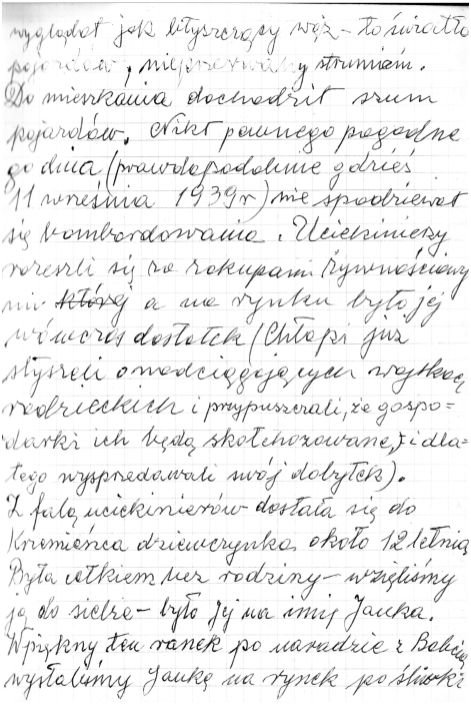 wyglądał jak błyszczący wąż – to światło
pojazdów, nieprzerwany strumień.
Do mieszkania dochodził szum
pojazdów. Nikt pewnego pogodne
go dnia (prawdopodobnie gdzieś
11 września 1939r) nie spodziewał
się bombardowania. Uciekinierzy
rozeszli się za zakupami żywnościowy
mi której a na rynku było jej
wówczas dostatek (Chłopi już
słyszeli o nadciągających wojskach
radzieckich i przypuszczali, że gospo=
darki ich będą skołchozowane, i dla=
tego wysprzedawali swój dobytek).
Z falą uciekinierów dostała się do
Krzemieńca dziewczynka około 12 letnia
Była całkiem bez rodziny – wzięliśmy
ją do siebie – było Jej na imię Janka.
W piękny ten ranek po naradzie z Babcią
wysłaliśmy Jankę na rynek po śliwki